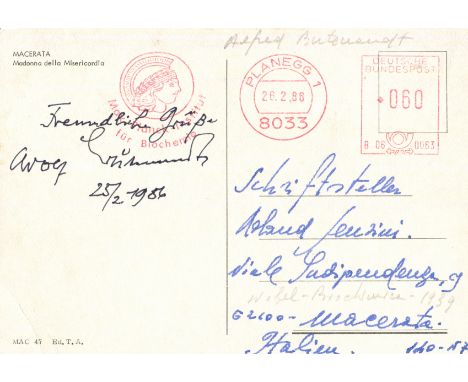 MACERATA
Madonna della Misericordia
Alfred Butenandt
Max-Planck-Institut
für Biochemie
PLANEGG 1
26.2.86
8033
DEUTSCHE
BUNDESPOST
060
B 06 0063
Freundliche Grüße
Adolf Butenandt
25/2 1986
Schriftsteller
Roland Jensini.
Viale Indipendenza, 9
Nobel-Biochimica-1939
62100-Macerata.
Italien.
MAC 47 Ed. T. A.